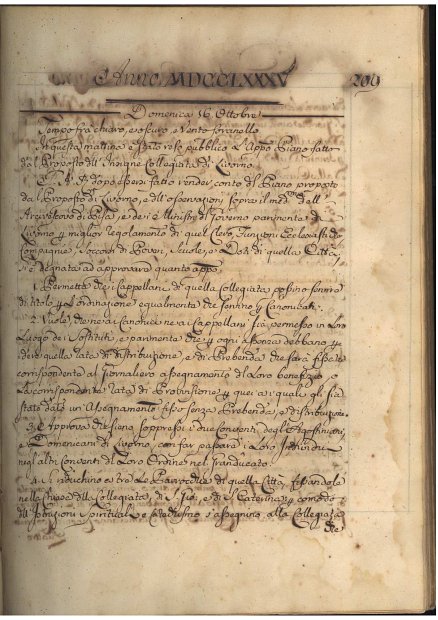 Anno MDCCLXXXV 209
Domenica 16. Ottobre
Tempo fra chiaro, e oscuro, e Vento
In questa mattina è stato reso pubblico L'App.o Piano fatto
dal Proposto dell'Insigne Collegiata di Livorno
S. A. R. dopo essersi fatto render conto del Piano proposto
dal Proposto di Livorno, e dell'Osservazioni sopra il med.mo dell'
Arcivescovo di Pisa, e de i Ministri di Governo parimente di
Livorno p. miglior regolamento di quel Clero, Funzioni Ecclesiastiche
Compagnie, Soccorsi di Poveri, Scuole, e Doti di quella Città
si è degnata ad approvare quanto app.o
1. Permette che i Cappellani di quella Collegiata possino
di titolo p. L'ordinazione egualmente che p. i Canonicati.
2. Vuole, che ne a Canonici ne a Cappellani sia permesso in Loro
Luogo de i Sostituti, e parimente che p. ogni assenza debbano
quella rata di distribuzione, e di Prebenda che sarà fissata
corrispondente al giornaliero assegnamento di Loro benefizio, o
La corrispondente rata di Provvisione p. quei a i quali gli sia
stato dato un Assegnamento fisso senza Prebenda, e distribuzione.
3. Approva che siano soppressi i due Conventi degli Agostiniani,
e Domenicani di Livorno, con far passare i Loro Individui
negl'altri Conventi di Loro Ordine nel Granducato.
4. Si riduchino a tre Le Parrocchie di quella Città, fissandole
nelle Chiese della Collegiata, di S. Gio: e di S. Caterina p. comodo
dell'Istruzioni Spirituali, e s'assegnino alla Collegiata
che